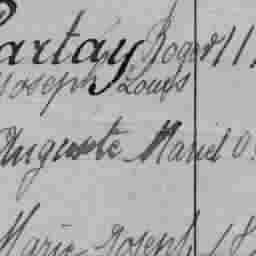 Partay Roger 11
Joseph Louis
Auguste Marie
Marie Joseph 18